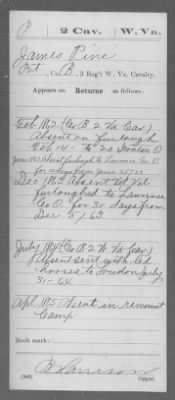 P | 2 Cav. | W. Va.
James Pine
Pvt, Co. B, 2 Reg't W. Va. Cavalry.
Appears on Returns as follows:
Feb 1862 (Co B 2 Va Cav)
Absent on furlough
Feb 14 to 20 Ironton O
June 1863 Absent furlough to Lawrence Co. O
for days from June 25/63
Dec 1863 Absent Vet Vol
furloughed to Lawrence
Co O for 30 days from
Dec 5/63
July 1864 (Co B 2 W Va Cav)
Absent sent with led
horses to Loudon July
31-64
Apl 1865 Absent in remount
Camp
Book mark:
(546)
Copyist.